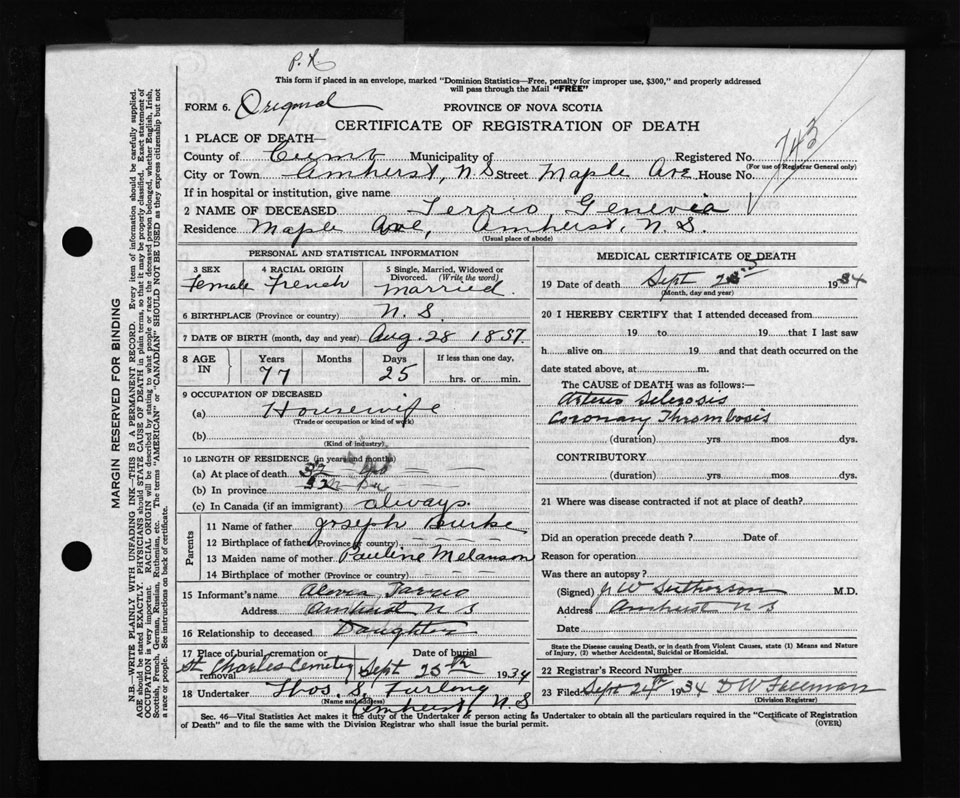 P. X
This form if placed in an envelope, marked "Dominion Statistics—Free, penalty for improper use, $300," and properly addressed
will pass through the Mail "FREE"
FORM 6. Original PROVINCE OF NOVA SCOTIA
CERTIFICATE OF REGISTRATION OF DEATH
743
1 PLACE OF DEATH—
County of Cumb Municipality of Registered No.
(For use of Registrar General only)
City or Town Amherst, N.S. Street Maple Ave House No.
If in hospital or institution, give name
2 NAME OF DECEASED Terrio Genevia
Residence Maple Ave, Amherst, N.S.
(Usual place of abode)
PERSONAL AND STATISTICAL INFORMATION
3 SEX 4 RACIAL ORIGIN 5 Single, Married, Widowed or
Divorced. (Write the word)
Female French Married
6 BIRTHPLACE (Province or country) N.S.
7 DATE OF BIRTH (month, day and year) Aug. 28 1857.
8 AGE IN Years Months Days If less than one day,
77 25 hrs. or min.
9 OCCUPATION OF DECEASED
(a) Housewife
(Trade or occupation or kind of work)
(b)
(Kind of industry)
10 LENGTH OF RESIDENCE (in years and months)
(a) At place of death
(b) In province
(c) In Canada (if an immigrant) always
Parents
11 Name of father Joseph Burke
12 Birthplace of father (Province or country)
13 Maiden name of mother Pauline Melanson
14 Birthplace of mother (Province or country)
15 Informant's name
Address Amherst N S
16 Relationship to deceased Daughter
17 Place of burial, cremation or removal Date of burial
St Charles Cemetery Sept 25th 1934
18 Undertaker Thos. S. Furlong
(Name and address) Amherst, N S
MEDICAL CERTIFICATE OF DEATH
19 Date of death Sept 1934
(Month, day and year)
20 I HEREBY CERTIFY that I attended deceased from
19 to 19 that I last saw
h alive on 19 and that death occurred on the
date stated above, at m.
The CAUSE of DEATH was as follows:—
Arterio Sclerosis
Coronary Thrombosis
(duration) yrs mos dys.
CONTRIBUTORY
(duration) yrs mos dys.
21 Where was disease contracted if not at place of death?
Did an operation precede death? Date of
Reason for operation
Was there an autopsy?
(Signed) M.D.
Address Amherst N S
Date
State the Disease causing Death, or in death from Violent Causes, state (1) Means and Nature
of Injury, (2) whether Accidental, Suicidal or Homicidal.
22 Registrar's Record Number
23 Filed Sept 24th 1934 D W Freeman
(Division Registrar)
Sec. 46—Vital Statistics Act makes it the duty of the Undertaker or person acting as Undertaker to obtain all the particulars required in the "Certificate of Registration
of Death" and to file the same with the Division Registrar who shall issue the burial permit. (OVER)
MARGIN RESERVED FOR BINDING
N.B.—WRITE PLAINLY WITH UNFADING INK—THIS IS A PERMANENT RECORD. Every item of information should be carefully supplied.
AGE should be stated EXACTLY. PHYSICIANS should STATE CAUSE OF DEATH in plain terms, so that it may be properly classified. Exact statement of
OCCUPATION is very important. RACIAL ORIGIN will be described by stating to what people or race the deceased person belonged, whether English, Irish,
Scottish, French, German, Russian, Ruthenian, etc. The terms "AMERICAN" or "CANADIAN" SHOULD NOT BE USED as they express citizenship but not
a race or people. See instructions on back of certificate.